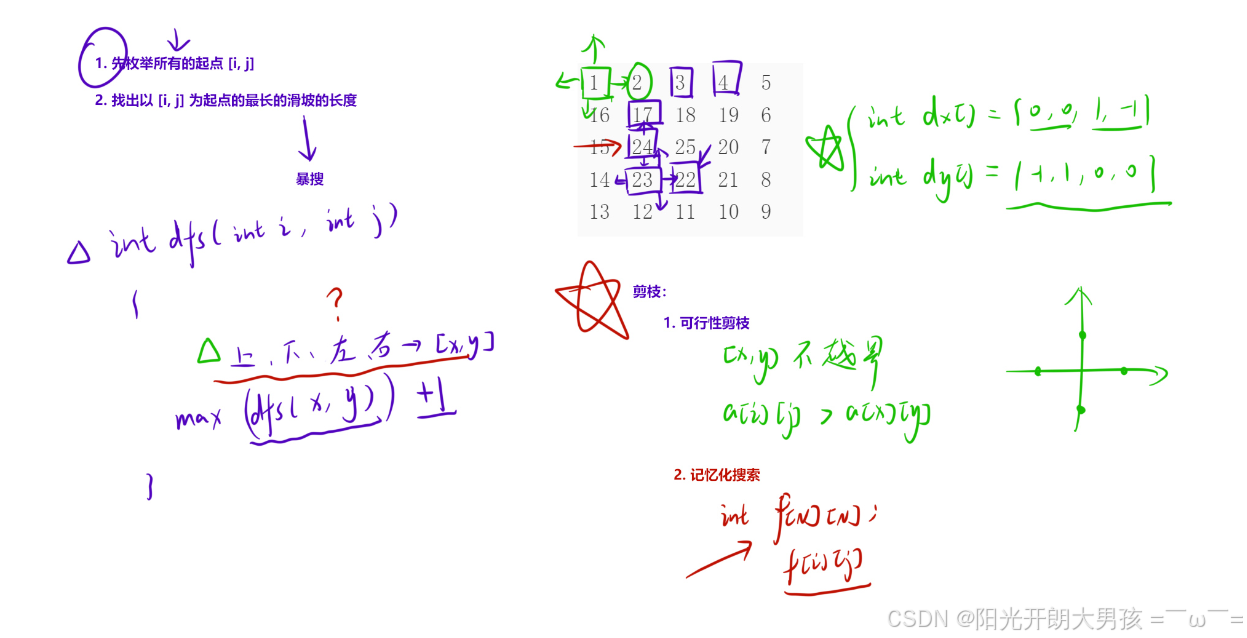 1. 先枚举所有的起点 [i, j]
2. 找出以 [i, j] 为起点的最长的滑坡的长度
暴搜
int dfs(int i, int j)
{
?
上、下、左、右 → [x,y]
max (dfs(x, y)) +1
}
1 2 3 4 5
16 17 18 19 6
15 24 25 20 7
14 23 22 21 8
13 12 11 10 9
int dx[] = {0, 0, 1, -1}
int dy[] = {-1, 1, 0, 0}
剪枝：
1. 可行性剪枝
[x,y] 不越界
a[i][j] > a[x][y]
2. 记忆化搜索
int f[N][N];
f[i][j]
CSDN @阳光开朗大男孩 =￣ω￣=